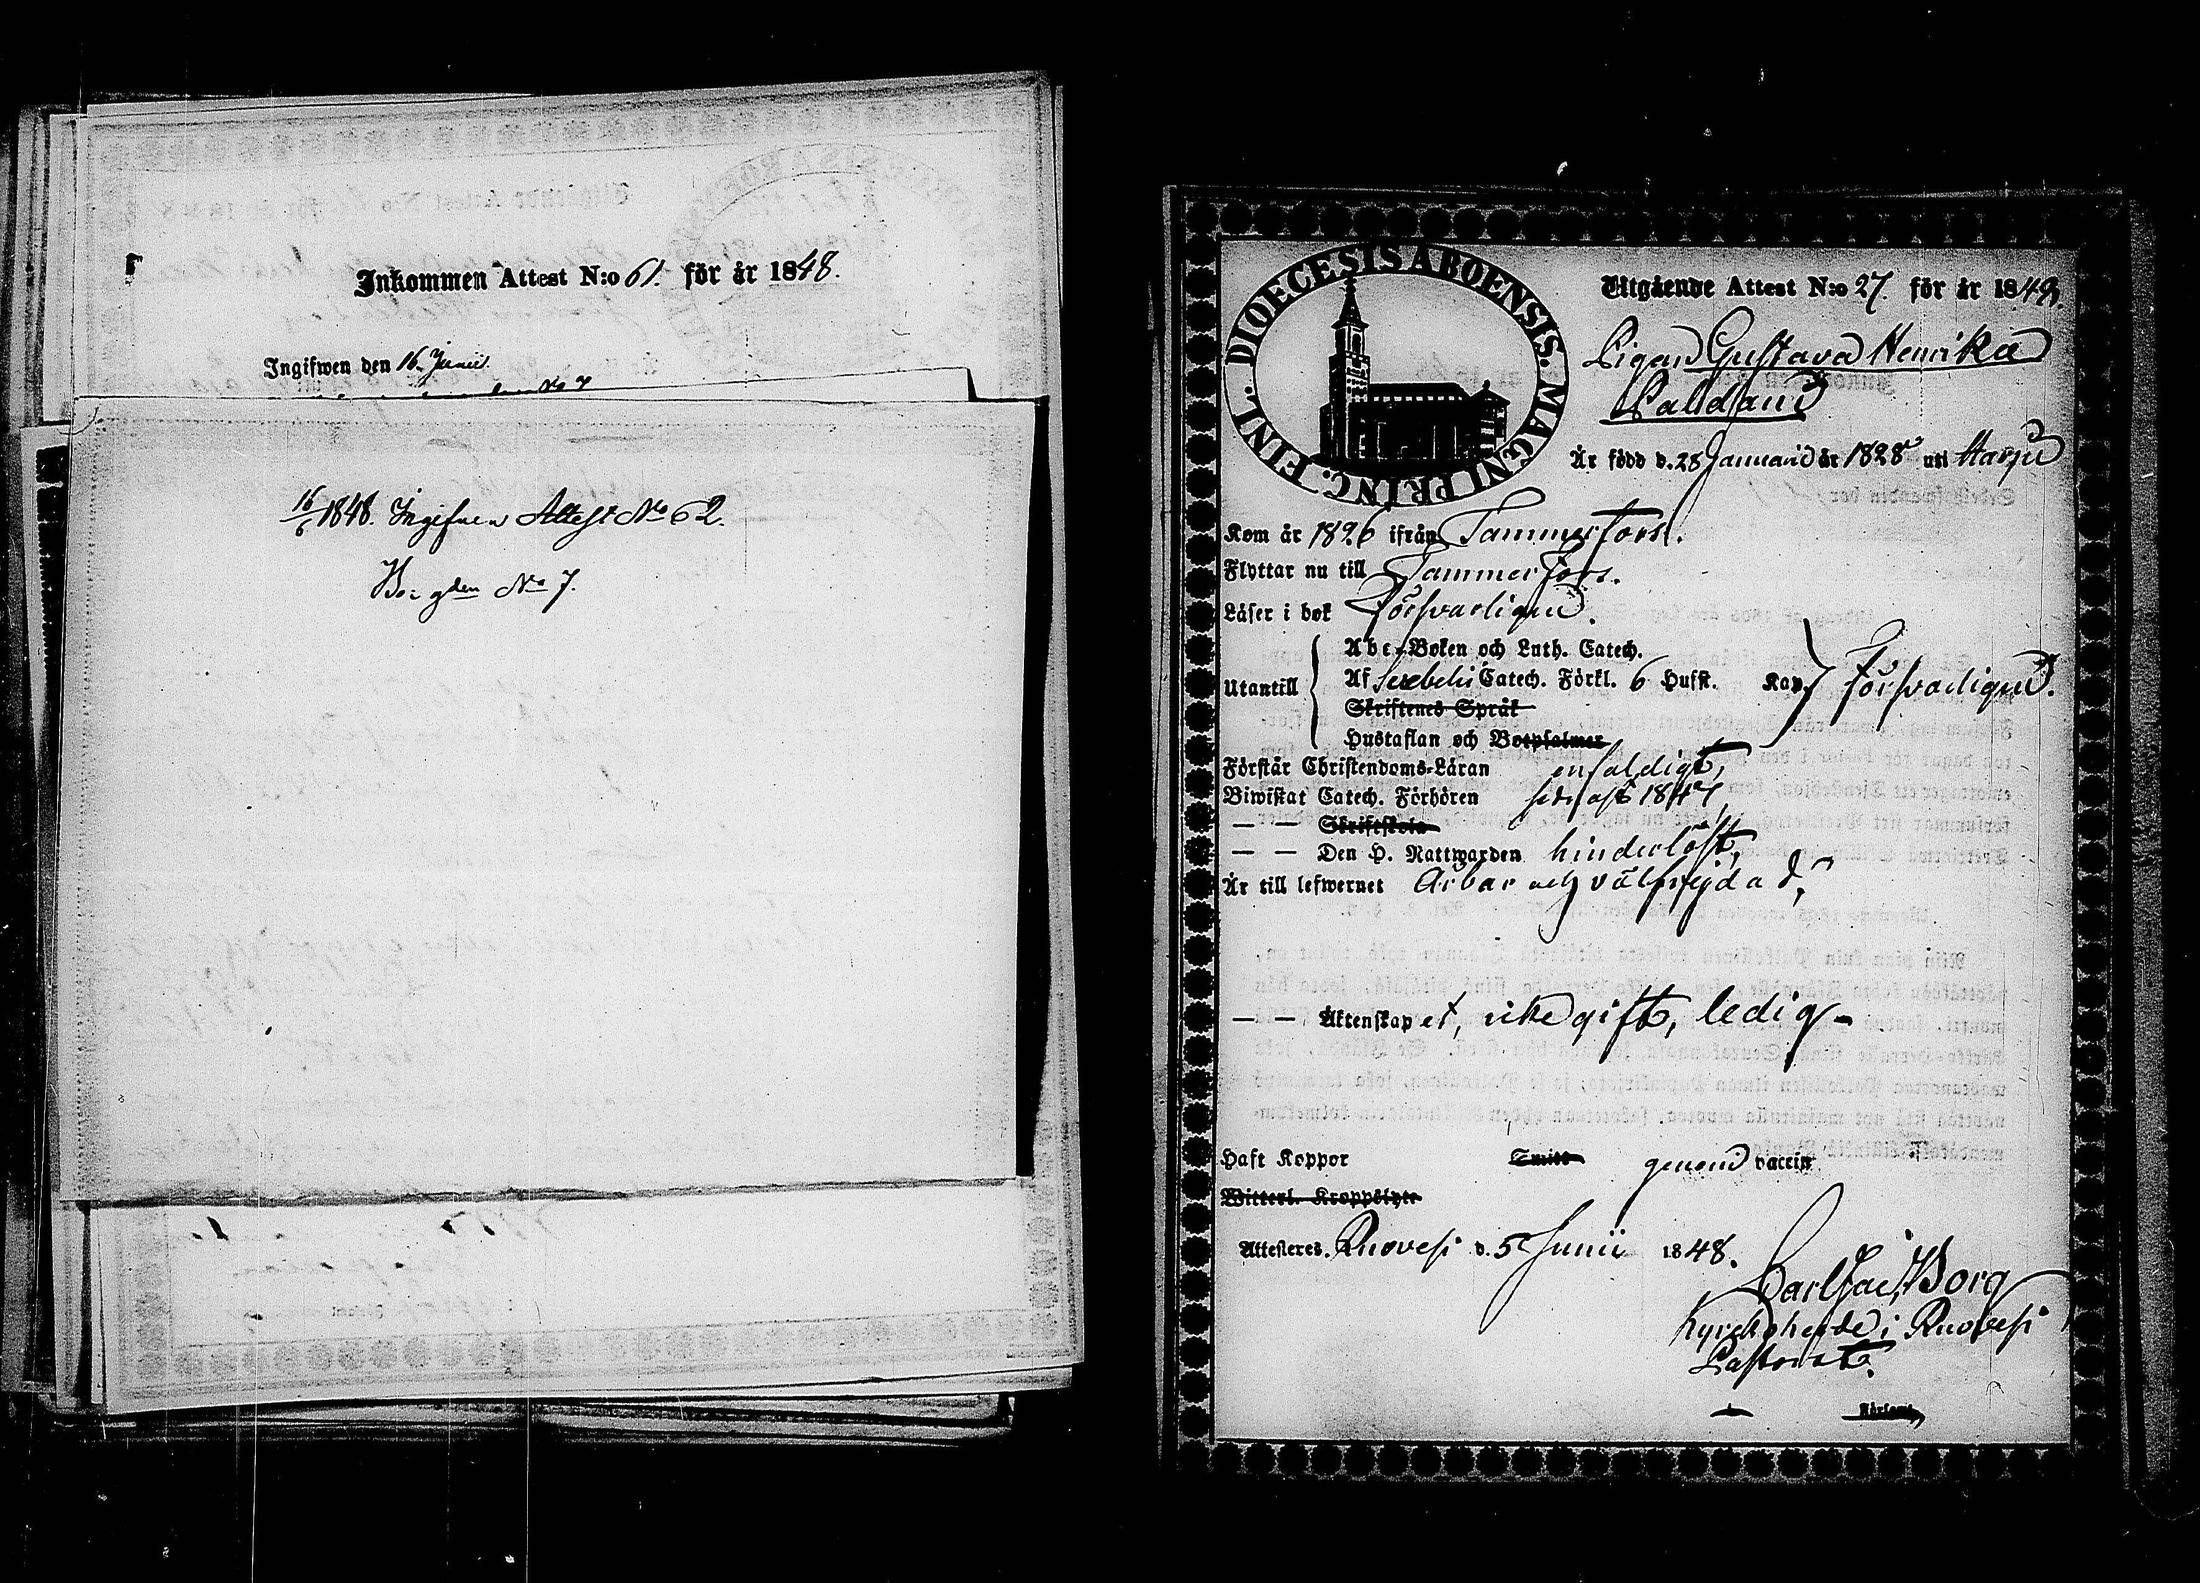 Inkommen Attest N:o 61. för år 1848.
Ingifwen den 16 Junii
16/6 1848. Ingifven Attest No 62.
Boi gden No 7.
DIOECESIS ABOENSIS. MAGNI PRINC. FINL.
Utgående Attest N:o 27. för år 1848.
Pigan Gustava Henrika
Är född d. 28 Januarii år 1828 uti
Kom år 1826 ifrån Tammerfors.
Flyttar nu till Tammerfors.
Läser i bok Försvarligen.
Utantill
Abc-Boken och Luth. Catech.
Af Svebelii Catech. Förkl. 6 Hufst. Kap. Försvarligen.
Skriftenes Språk
Hustaflan och Botpsalmer
Förstår Christendoms-Läran enfaldigt,
Biwistat Catech. Förhören sednast 1847
— — Skriftskola
— — Den H. Nattwarden hinderlöst,
Är till lefwernet Ärbar och välfrejdad,
— — Äktenskapet, icke gift, ledig-
Haft Koppor Smitt genom vaccin
Witterl. Kroppslyte
Attesteres. Ruovesi d. 5 Junii 1848.
Carl Jac. Borg
Kyrckoherde i Ruovesi
Pastorat.